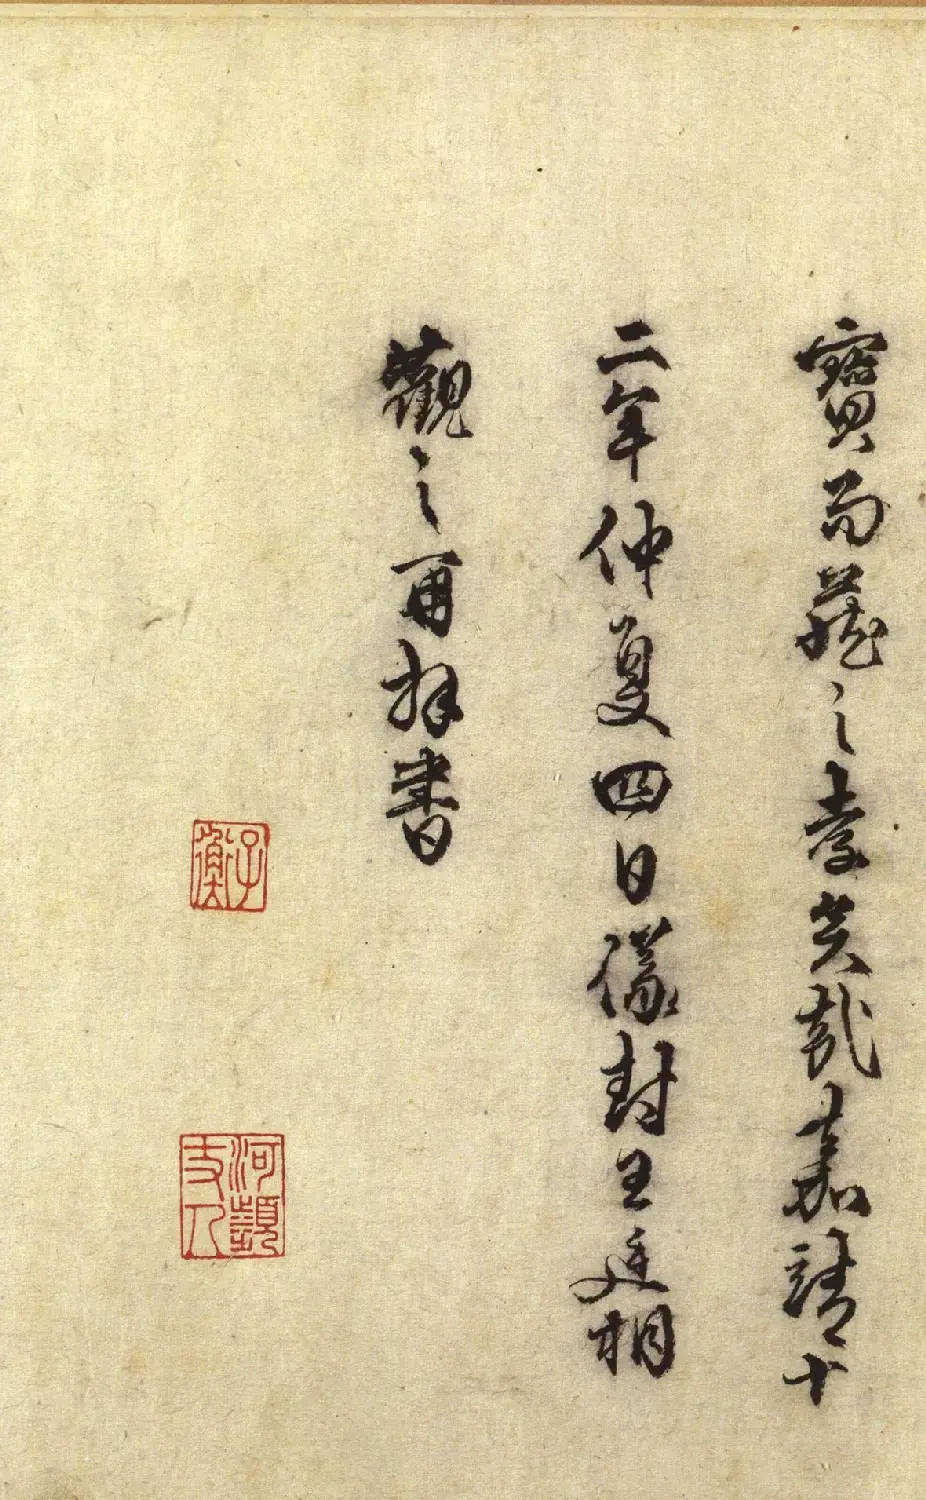 寶而藏之孝矣哉嘉靖十
二年仲夏四日儀封王廷相
觀之再拜書
子衡
河顛丈人